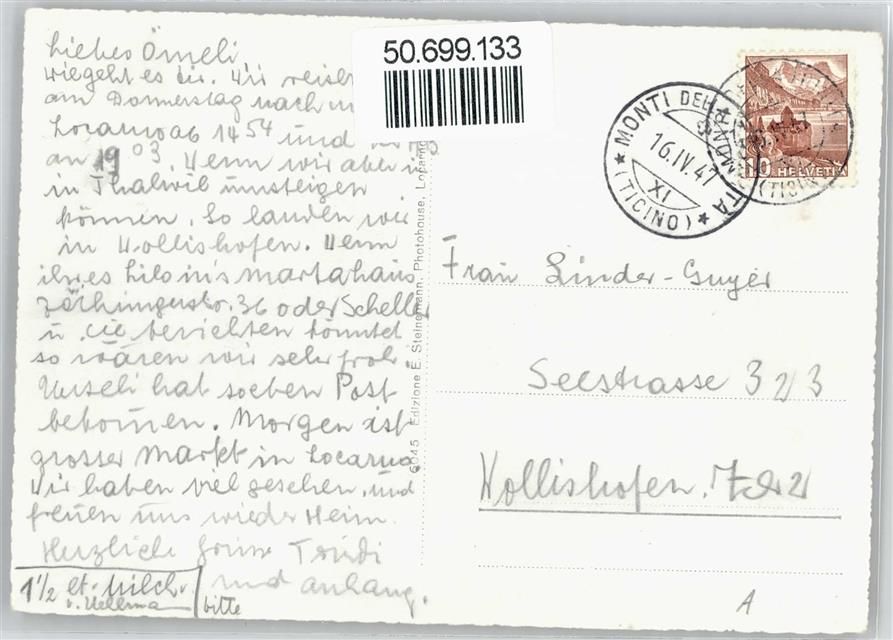 Liebes Ömeli
wie geht es dir. Wir reisen
am Donnerstag nach
Locarno ab 14 54 und
an 19 03. Wenn wir aber
in Thalwil umsteigen
können. So landen wir
in Wollishofen. Wenn
ihr es Lilo ins Martahaus
Zähringerstr. 36 oder Scheller
u. Cie berichten könntet
so wären wir sehr froh.
Urseli hat soeben Post
bekomen. Morgen ist
grosser Markt in Locarno.
Wir haben viel gesehen, und
freuen uns wieder Heim.
Herzliche Grüsse Trudi
und anhang.
1 1/2 lt. Milch
v. Uellerma
bitte
50.699.133
MONTI DELLA
16.IV.47
XI
(TICINO)
10 HELVETIA
6045 Edizione E. Steinemann, Photohouse, Locarno
Frau Linder-Guyer
Seestrasse 323
Wollishofen. Zch 2
A